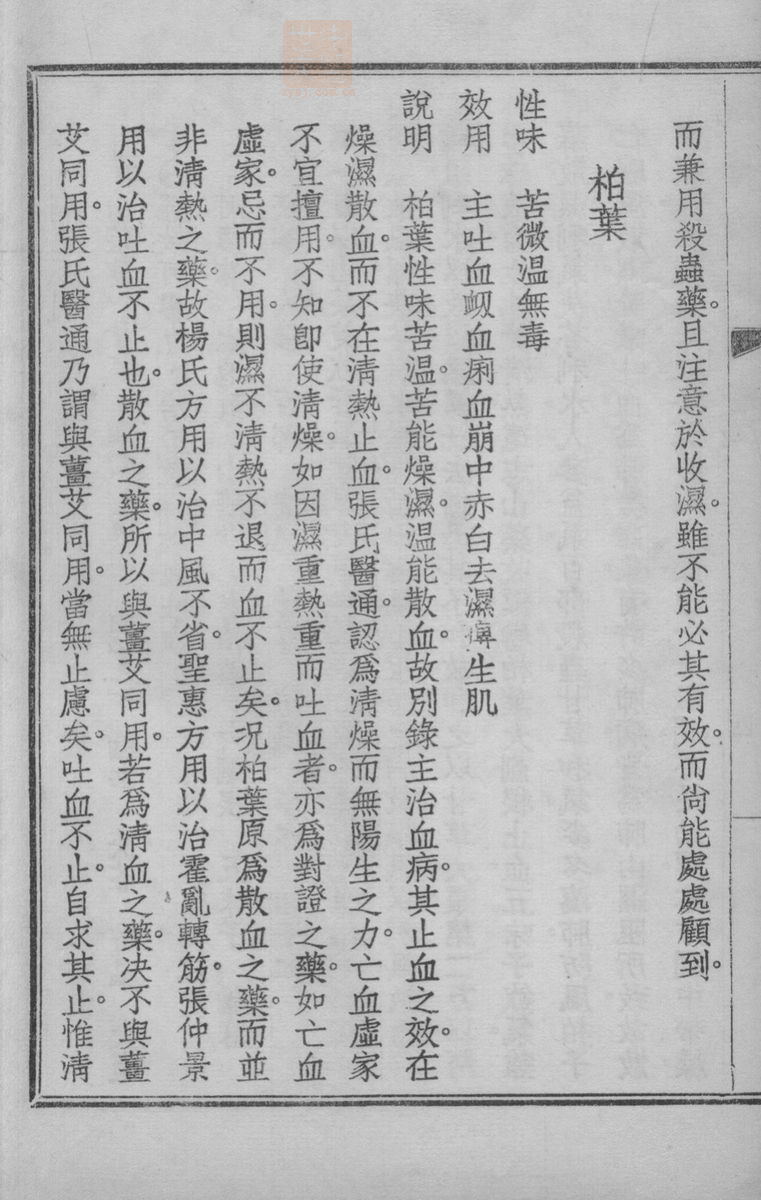 而兼用殺蟲藥。且注意於收濕。雖不能必其有效。而尙能處處顧到。
柏葉
性味　苦微温無毒
效用　主吐血衂血痢血崩中赤白去濕痺生肌
說明　柏葉性味苦温。苦能燥濕。温能散血。故別錄主治血病。其止血之效。在
燥濕散血。而不在淸熱止血。張氏醫通。認爲淸燥而無陽生之力。亡血虛家
不宜擅用。不知卽使淸燥。如因濕重熱重而吐血者。亦爲對證之藥。如亡血
虛家。忌而不用。則濕不淸熱不退而血不止矣。况柏葉原爲散血之藥。而並
非淸熱之藥。故楊氏方用以治中風不省。聖惠方用以治霍亂轉筋。張仲景
用以治吐血不止也。散血之藥。所以與薑艾同用。若爲淸血之藥。决不與薑
艾同用。張氏醫通乃謂與薑艾同用。當無止慮矣。吐血不止。自求其止。惟淸